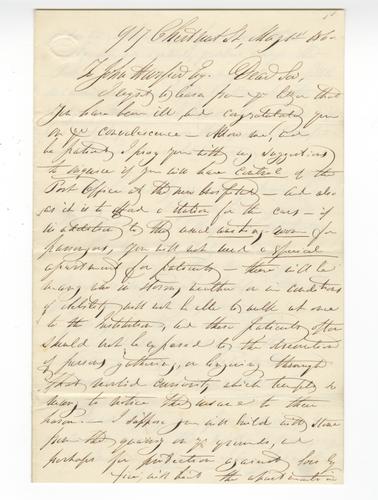 917 Chestnut St, May 1st 186
To John Harper Esq. Dear Sir,
I regret to learn from yr letter that
you have been ill and congratulate you
on yr convalescence — Allow me, and
be patient I pray you with my suggestions
to inquire if you will have control of the
Post Office at the new Hospital — and also
as it is to be a station for the cars — if
in addition to the usual waiting-room for
passengers, you will not need a special
apartment for patients — there will be
many who in stormy weather or in conditions
of debility will not be able to walk at once
to the Institution, and these patients often
should not be exposed to the observation
of persons gathering, or lingering through
that morbid curiosity which tempts so
many to notice the insane to their
harm. — I suppose you will build with stone
from the quarry on yr grounds, and
perhaps for protection against loss by
fire, will the